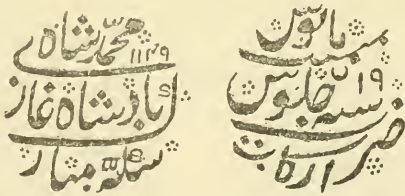 محمد شاه
۱۱۴۹
بادشاه غازی
سکه مبارك
مانوس
میمنت
سنه ۱۹ جلوس
ضرب ارکات